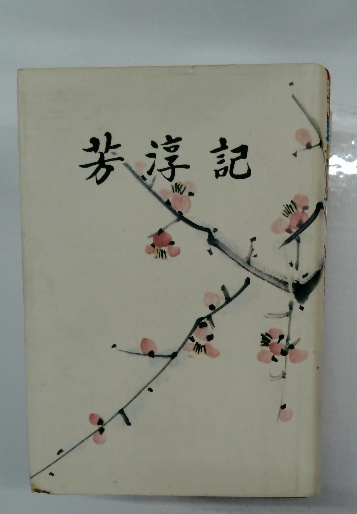 芳淳記